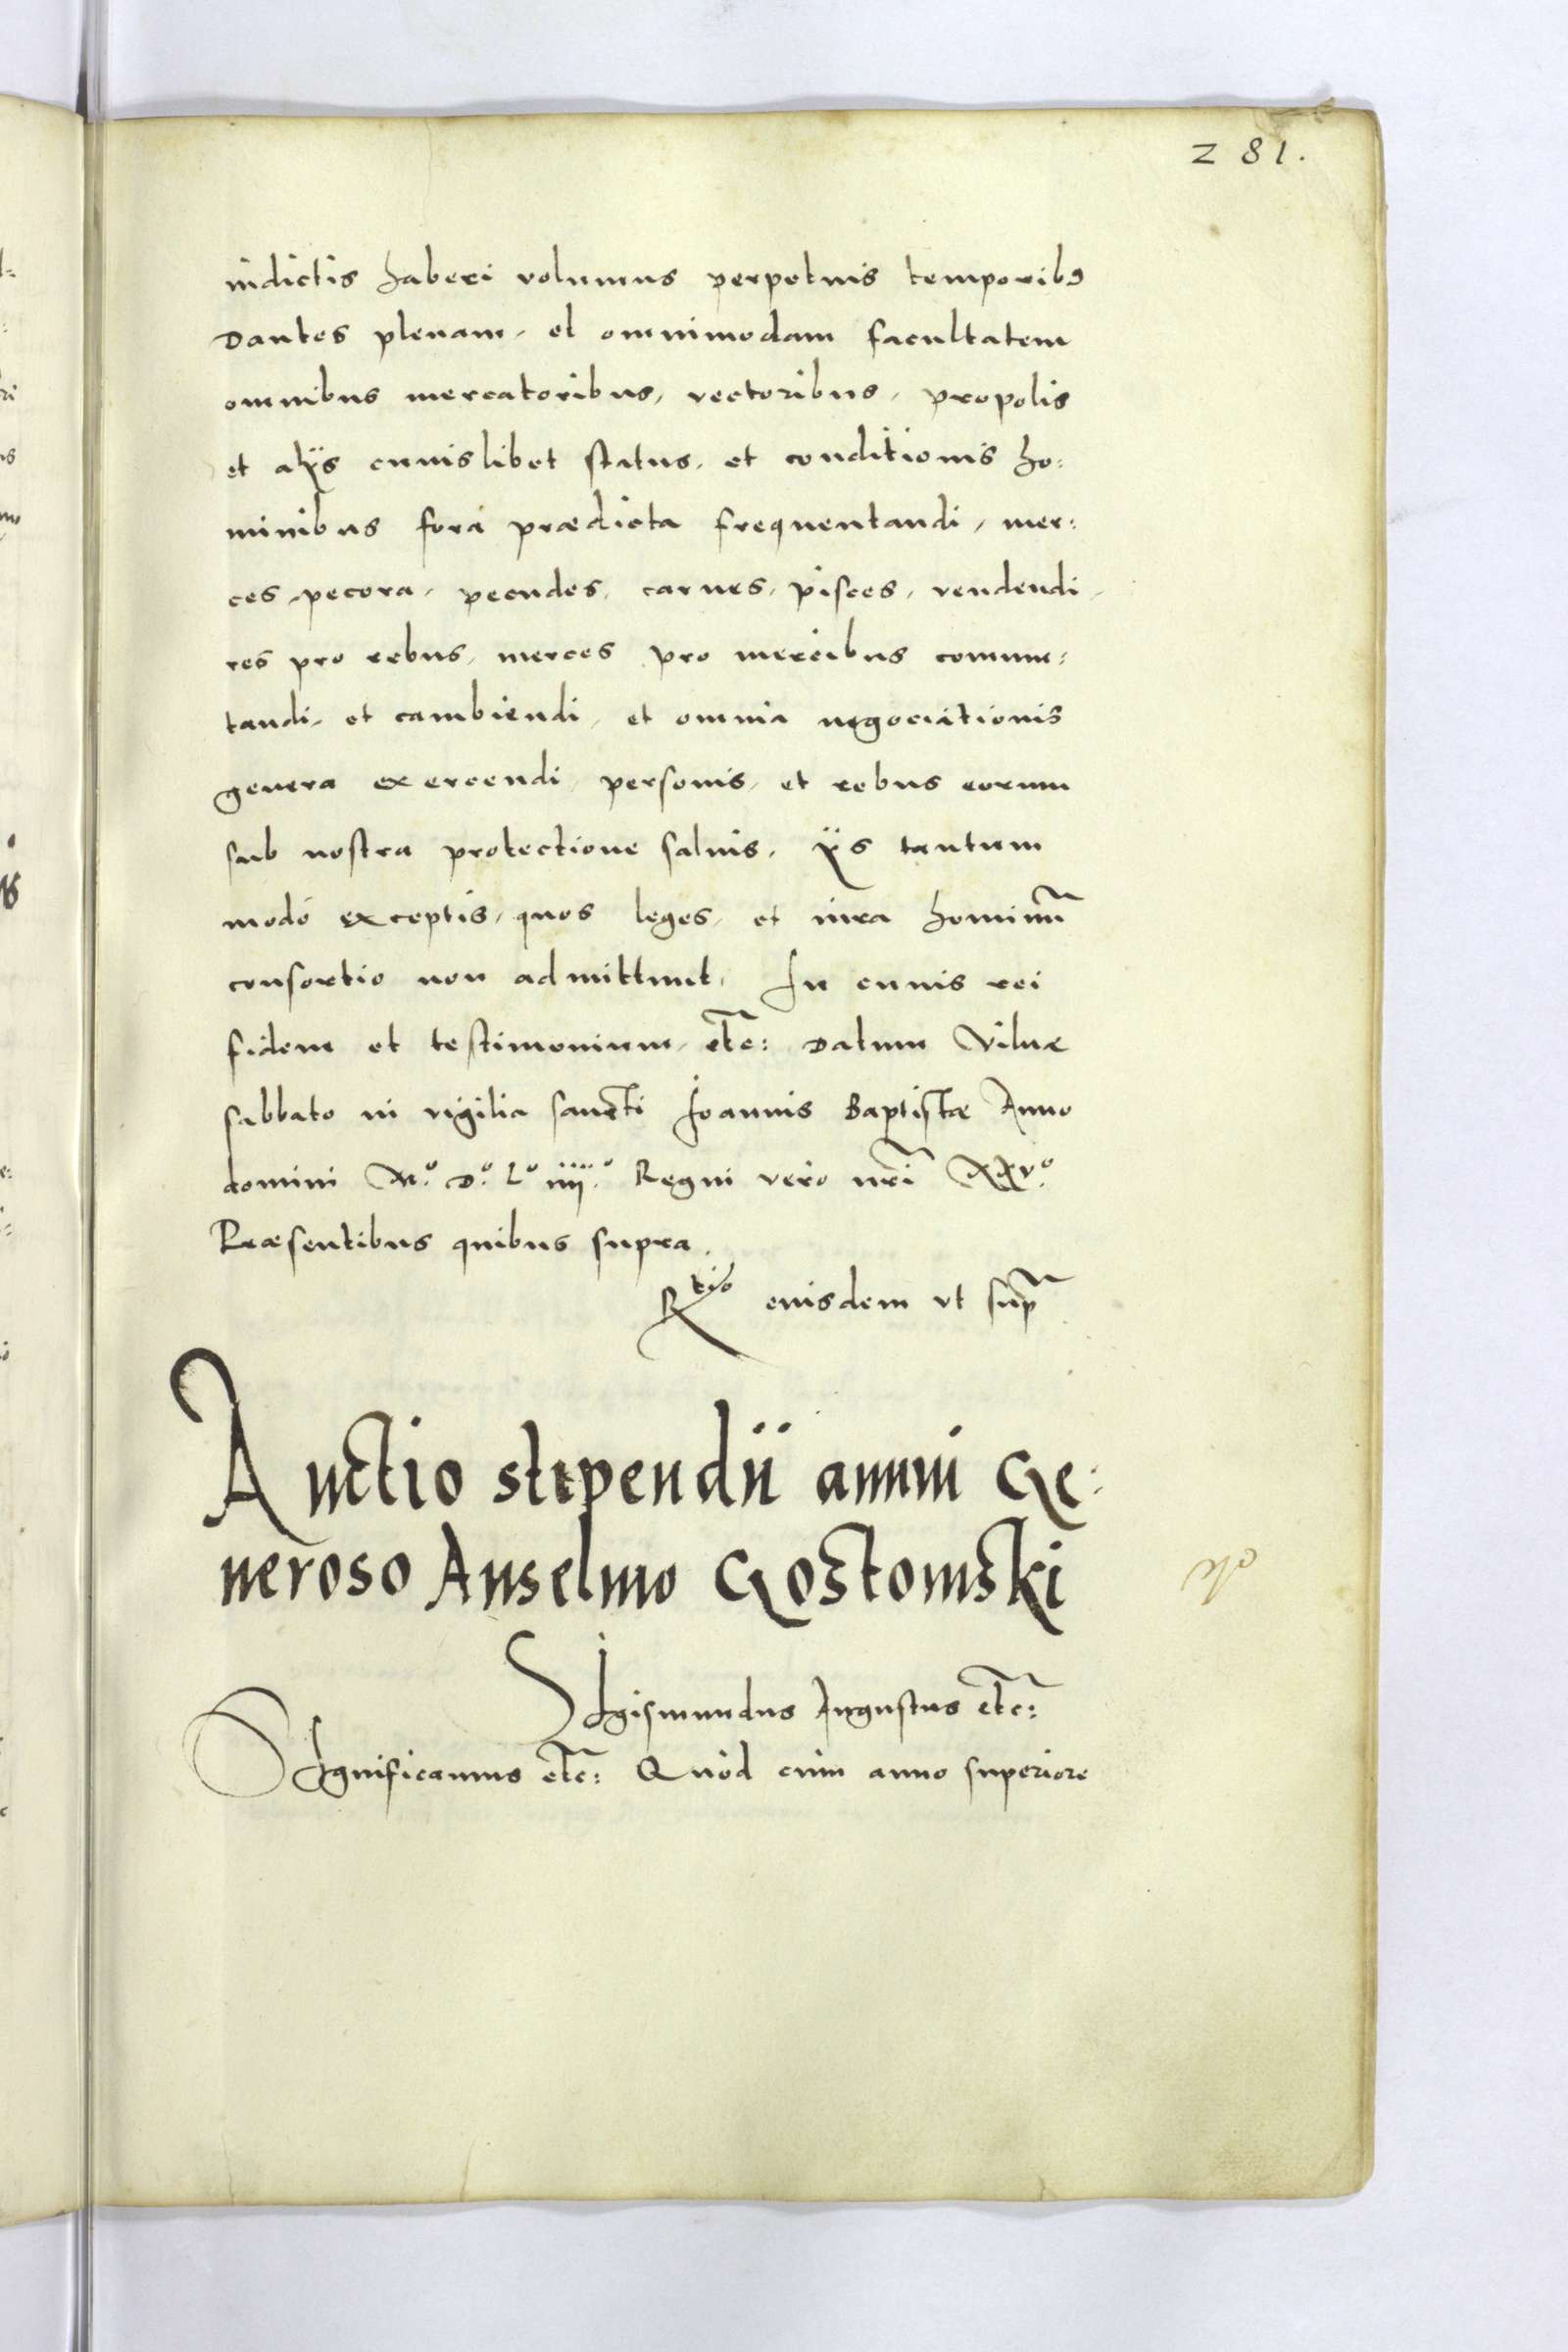 281.
indictis haberi volumus perpetuis temporib9
Dantes plenam, et omnimodam facultatem
omnibus mercatoribus, vectoribus, propolis
et alÿs cuiuslibet status, et conditionis ho:
minibus fora prædicta frequentandi, mer:
ces, pecora, pecudes, carnes, pisces, vendendi,
res pro rebus, merces pro mercibus commu:
tandi, et cambiendi, et omnia negociationis
genera exercendi, personis, et rebus eorum
sub nostra protectione saluis, ÿs tantum
modo exceptis, quos leges, et iura hominũ
consortio non admittunt. In cuius rei
fidem et testimonium, etc: Datum Vilnæ
sabbato in vigilia sancti Joannis Baptistæ Anno
domini Mº. Dº. Lº iiijº. Regni vero nr̃i XXVº.
Præsentibus quibus supra.
Rtio eiusdem vt sup̃
Auctio stipendii annui Ge:
neroso Anselmo Gostomski
SIgismundus Augustus etc:
SIgnificamus etc: Quod cum anno superiore